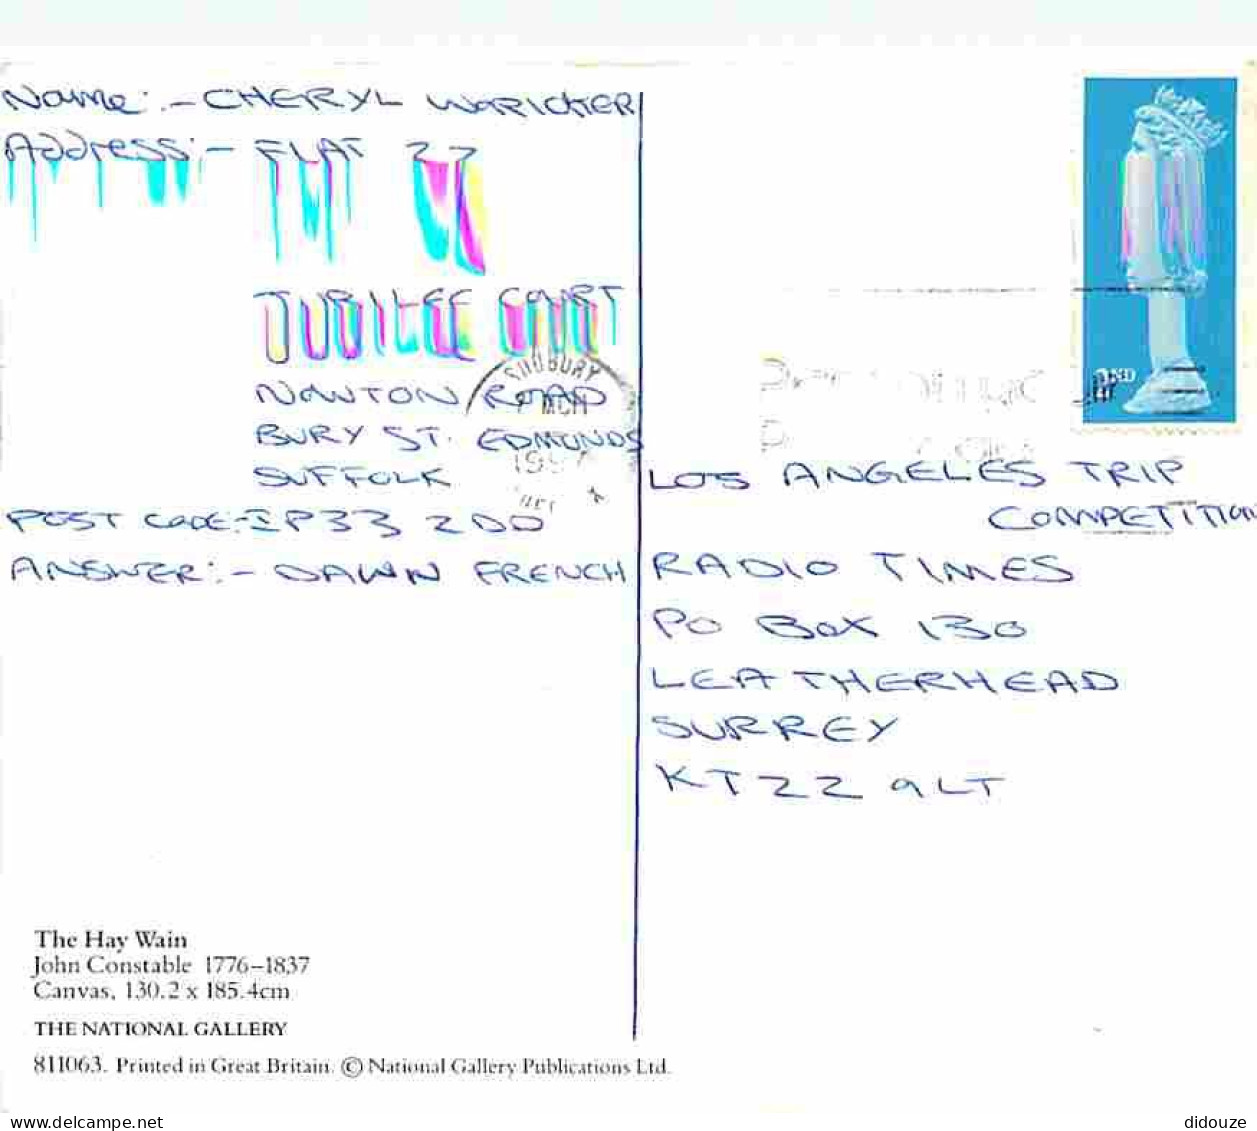 Name:- CHERYL WARICKER
Address:- FLAT 27
JUBILEE COURT
NOWTON ROAD
BURY ST. EDMUNDS
SUFFOLK
POST CODE:- IP33 2DD
ANSWER:- DAWN FRENCH
SUDBURY
LOS ANGELES TRIP
COMPETITION
RADIO TIMES
PO BOX 130
LEATHERHEAD
SURREY
KT22 9LT
The Hay Wain
John Constable 1776–1837
Canvas, 130.2 x 185.4cm
THE NATIONAL GALLERY
811063. Printed in Great Britain. © National Gallery Publications Ltd.
www.delcampe.net
didouze